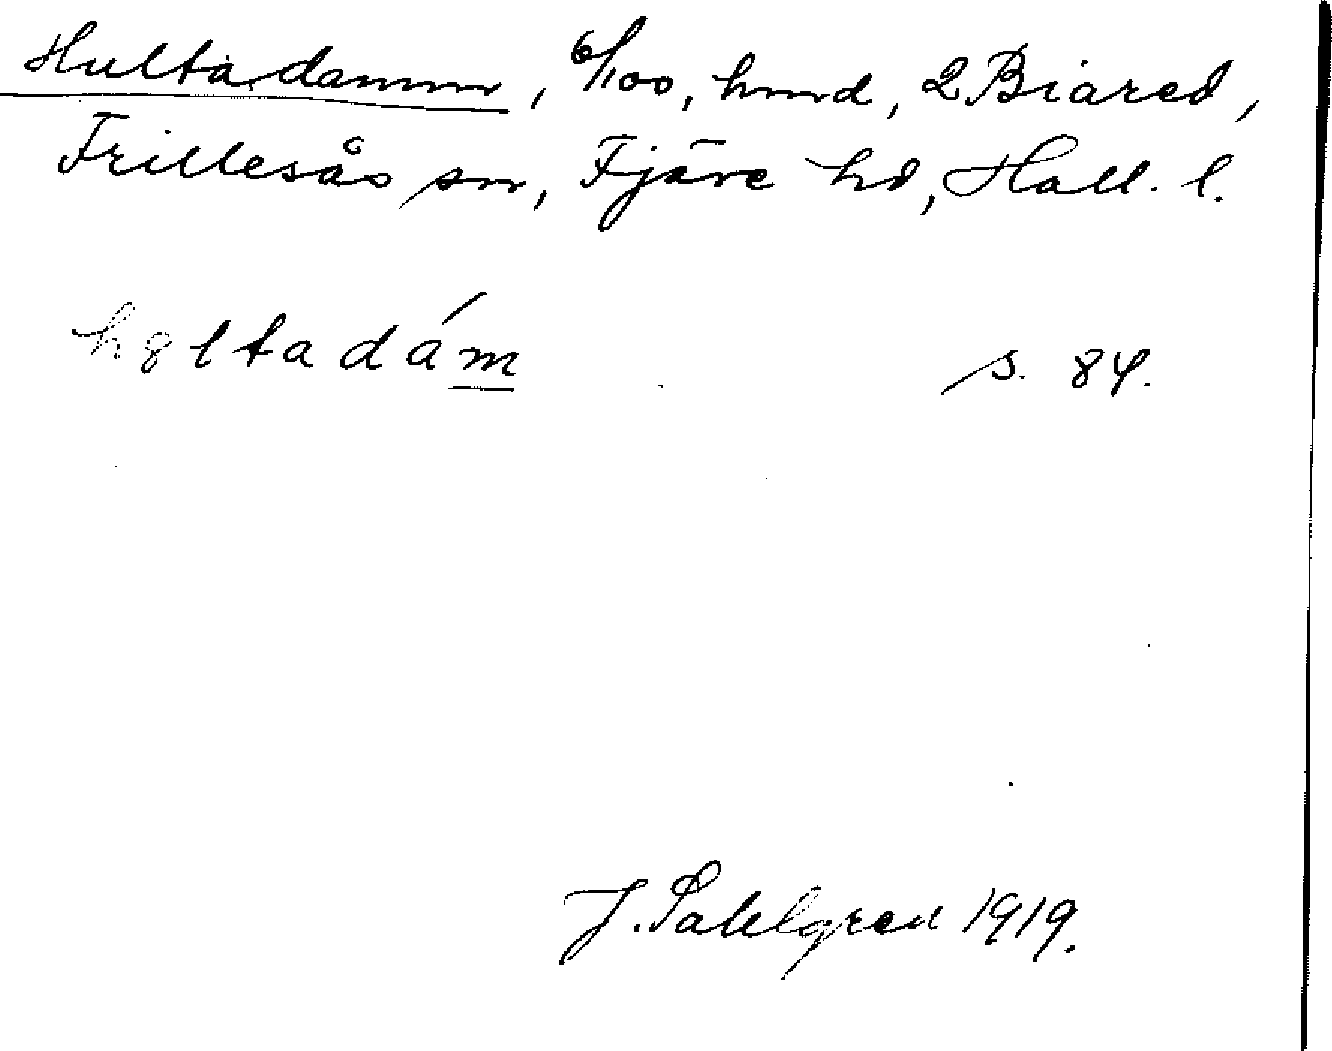 Hultadamm, 6/100, hmd, 2 Biared,
Frillesås sn, Fjäre hd, Hall. l.
h8ltadám s. 84.
J. Sahlgren 1919.